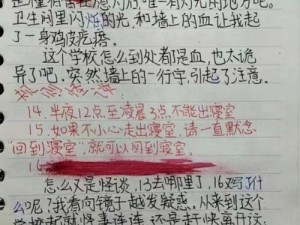 卫生间里闪烁的光,和墙上的血让我起
了一身鸡皮疙瘩。
这个学校怎么到处都是血,也太诡
异了吧。突然,墙上的一行字,引起了注意。
14.半夜12点至凌晨3点,不能出寝室
15.如果不小心走出寝室,请一直默念
“回到寝室”就可以回到寝室
16
怎么又是怪谈,13去哪里了,16又写了什
么呢?我看向镜子越发疑惑,从来到这个